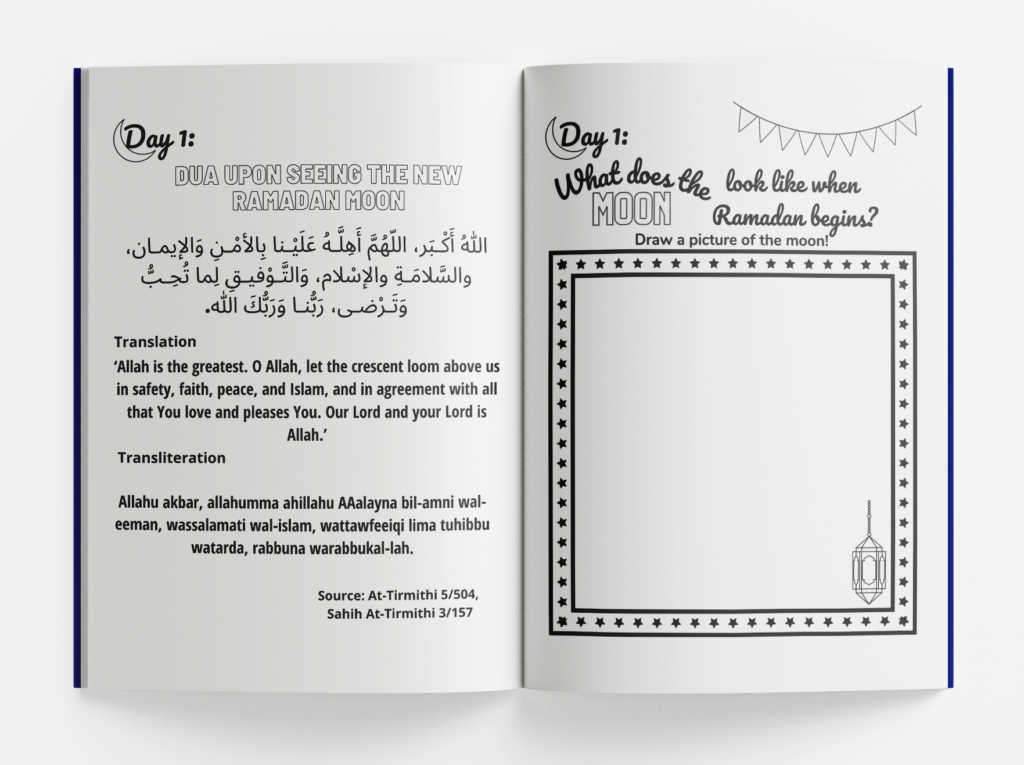 Day 1:
DUA UPON SEEING THE NEW
RAMADAN MOON
اللهُ أَكْـبَر، اللّهُمَّ أَهِلَّـهُ عَلَيْـنا بِالأمْـنِ وَالإيمـان،
والسَّلامَـةِ والإسْلام، وَالتَّـوْفيـقِ لِما تُحِـبُّ
وَتَـرْضـى، رَبُّنـا وَرَبُّكَ الله.
Translation
‘Allah is the greatest. O Allah, let the crescent loom above us
in safety, faith, peace, and Islam, and in agreement with all
that You love and pleases You. Our Lord and your Lord is
Allah.’
Transliteration
Allahu akbar, allahumma ahillahu AAalayna bil-amni wal-
eeman, wassalamati wal-islam, wattawfeeiqi lima tuhibbu
watarda, rabbuna warabbukal-lah.
Source: At-Tirmithi 5/504,
Sahih At-Tirmithi 3/157
Day 1:
What does the look like when
MOON Ramadan begins?
Draw a picture of the moon!